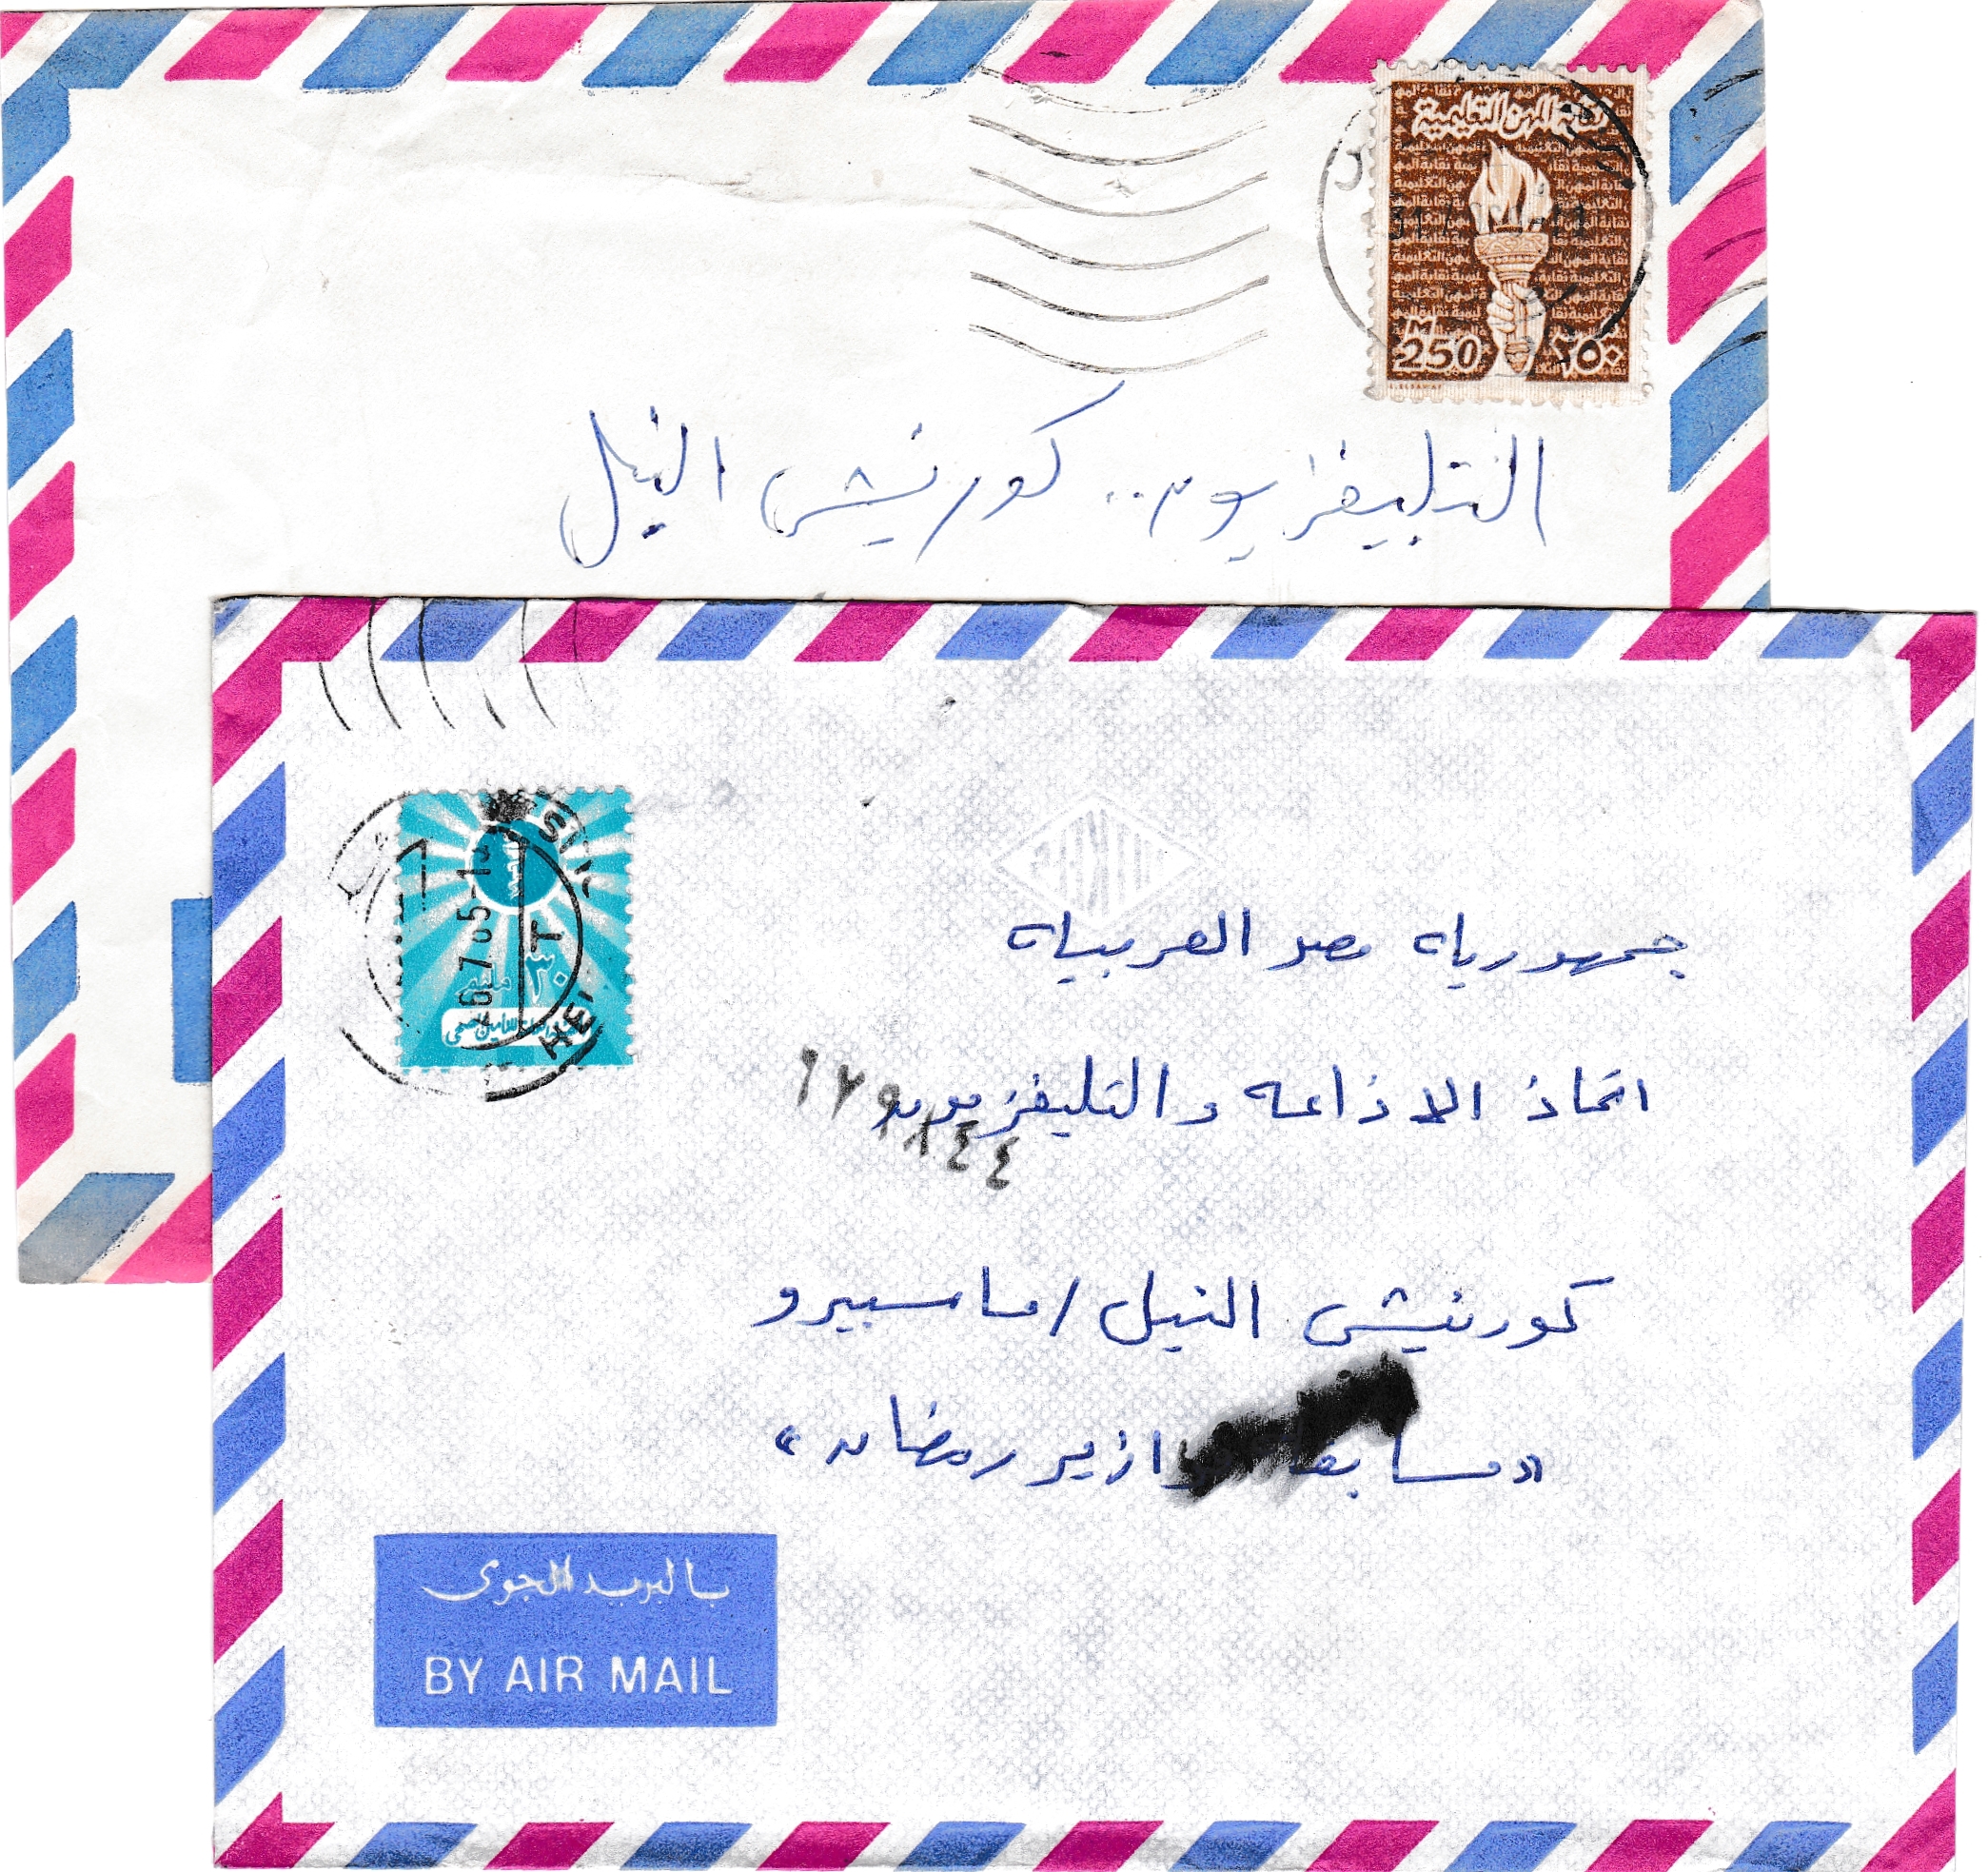 نقابة المهن التعليمية
M
250 ٢٥٠
التليفزيون.. كورنيش النيل
٣٠
مليم
HE
جمهورياه مصر العربياه
اتحاذ الاذاعه والتليفزيون
٦٧٩٨٤٤
كورنيش النيل / ماسبيرو
«مسابقه وازير رمضان»
بالبريد الجوى
BY AIR MAIL